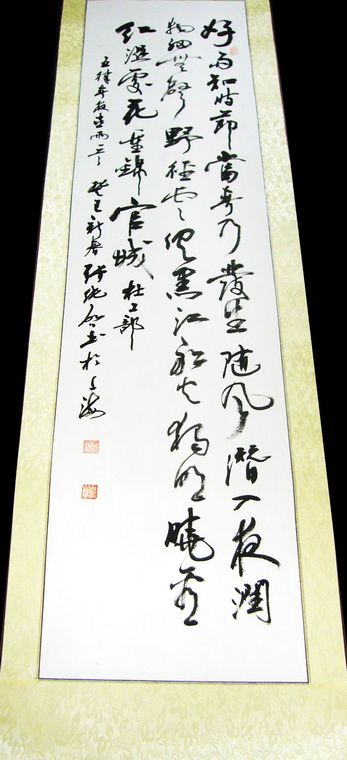 好雨知時節當春乃發生随風潛入夜潤
物細無聲野徑雲俱黑江船火獨明曉看
紅溼處花重錦官城 杜工部
五律春夜喜雨 新春 书於上海